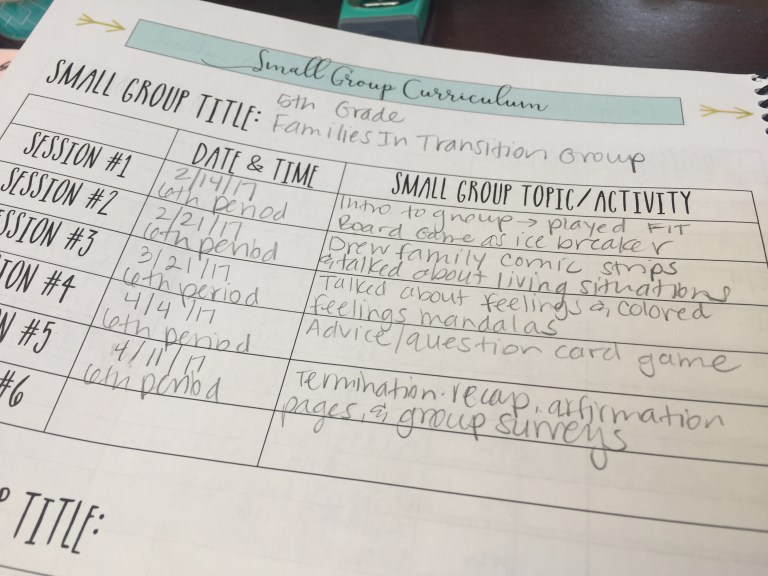 Small Group Curriculum
SMALL GROUP TITLE: 5th Grade
Families In Transition Group
DATE & TIME SMALL GROUP TOPIC/ACTIVITY
SESSION #1 2/14/17 Intro to group → played FIT
6th period Board Game as ice breaker
SESSION #2 2/21/17 Drew family comic strips
6th period & talked about living situations
SSION #3 3/21/17 Talked about feelings & colored
6th period feelings mandalas
ION #4 4/4/17 Advice/question card game
6th period
N #5 4/11/17 Termination · recap, affirmation
6th period pages, & group surveys
#6
P TITLE: